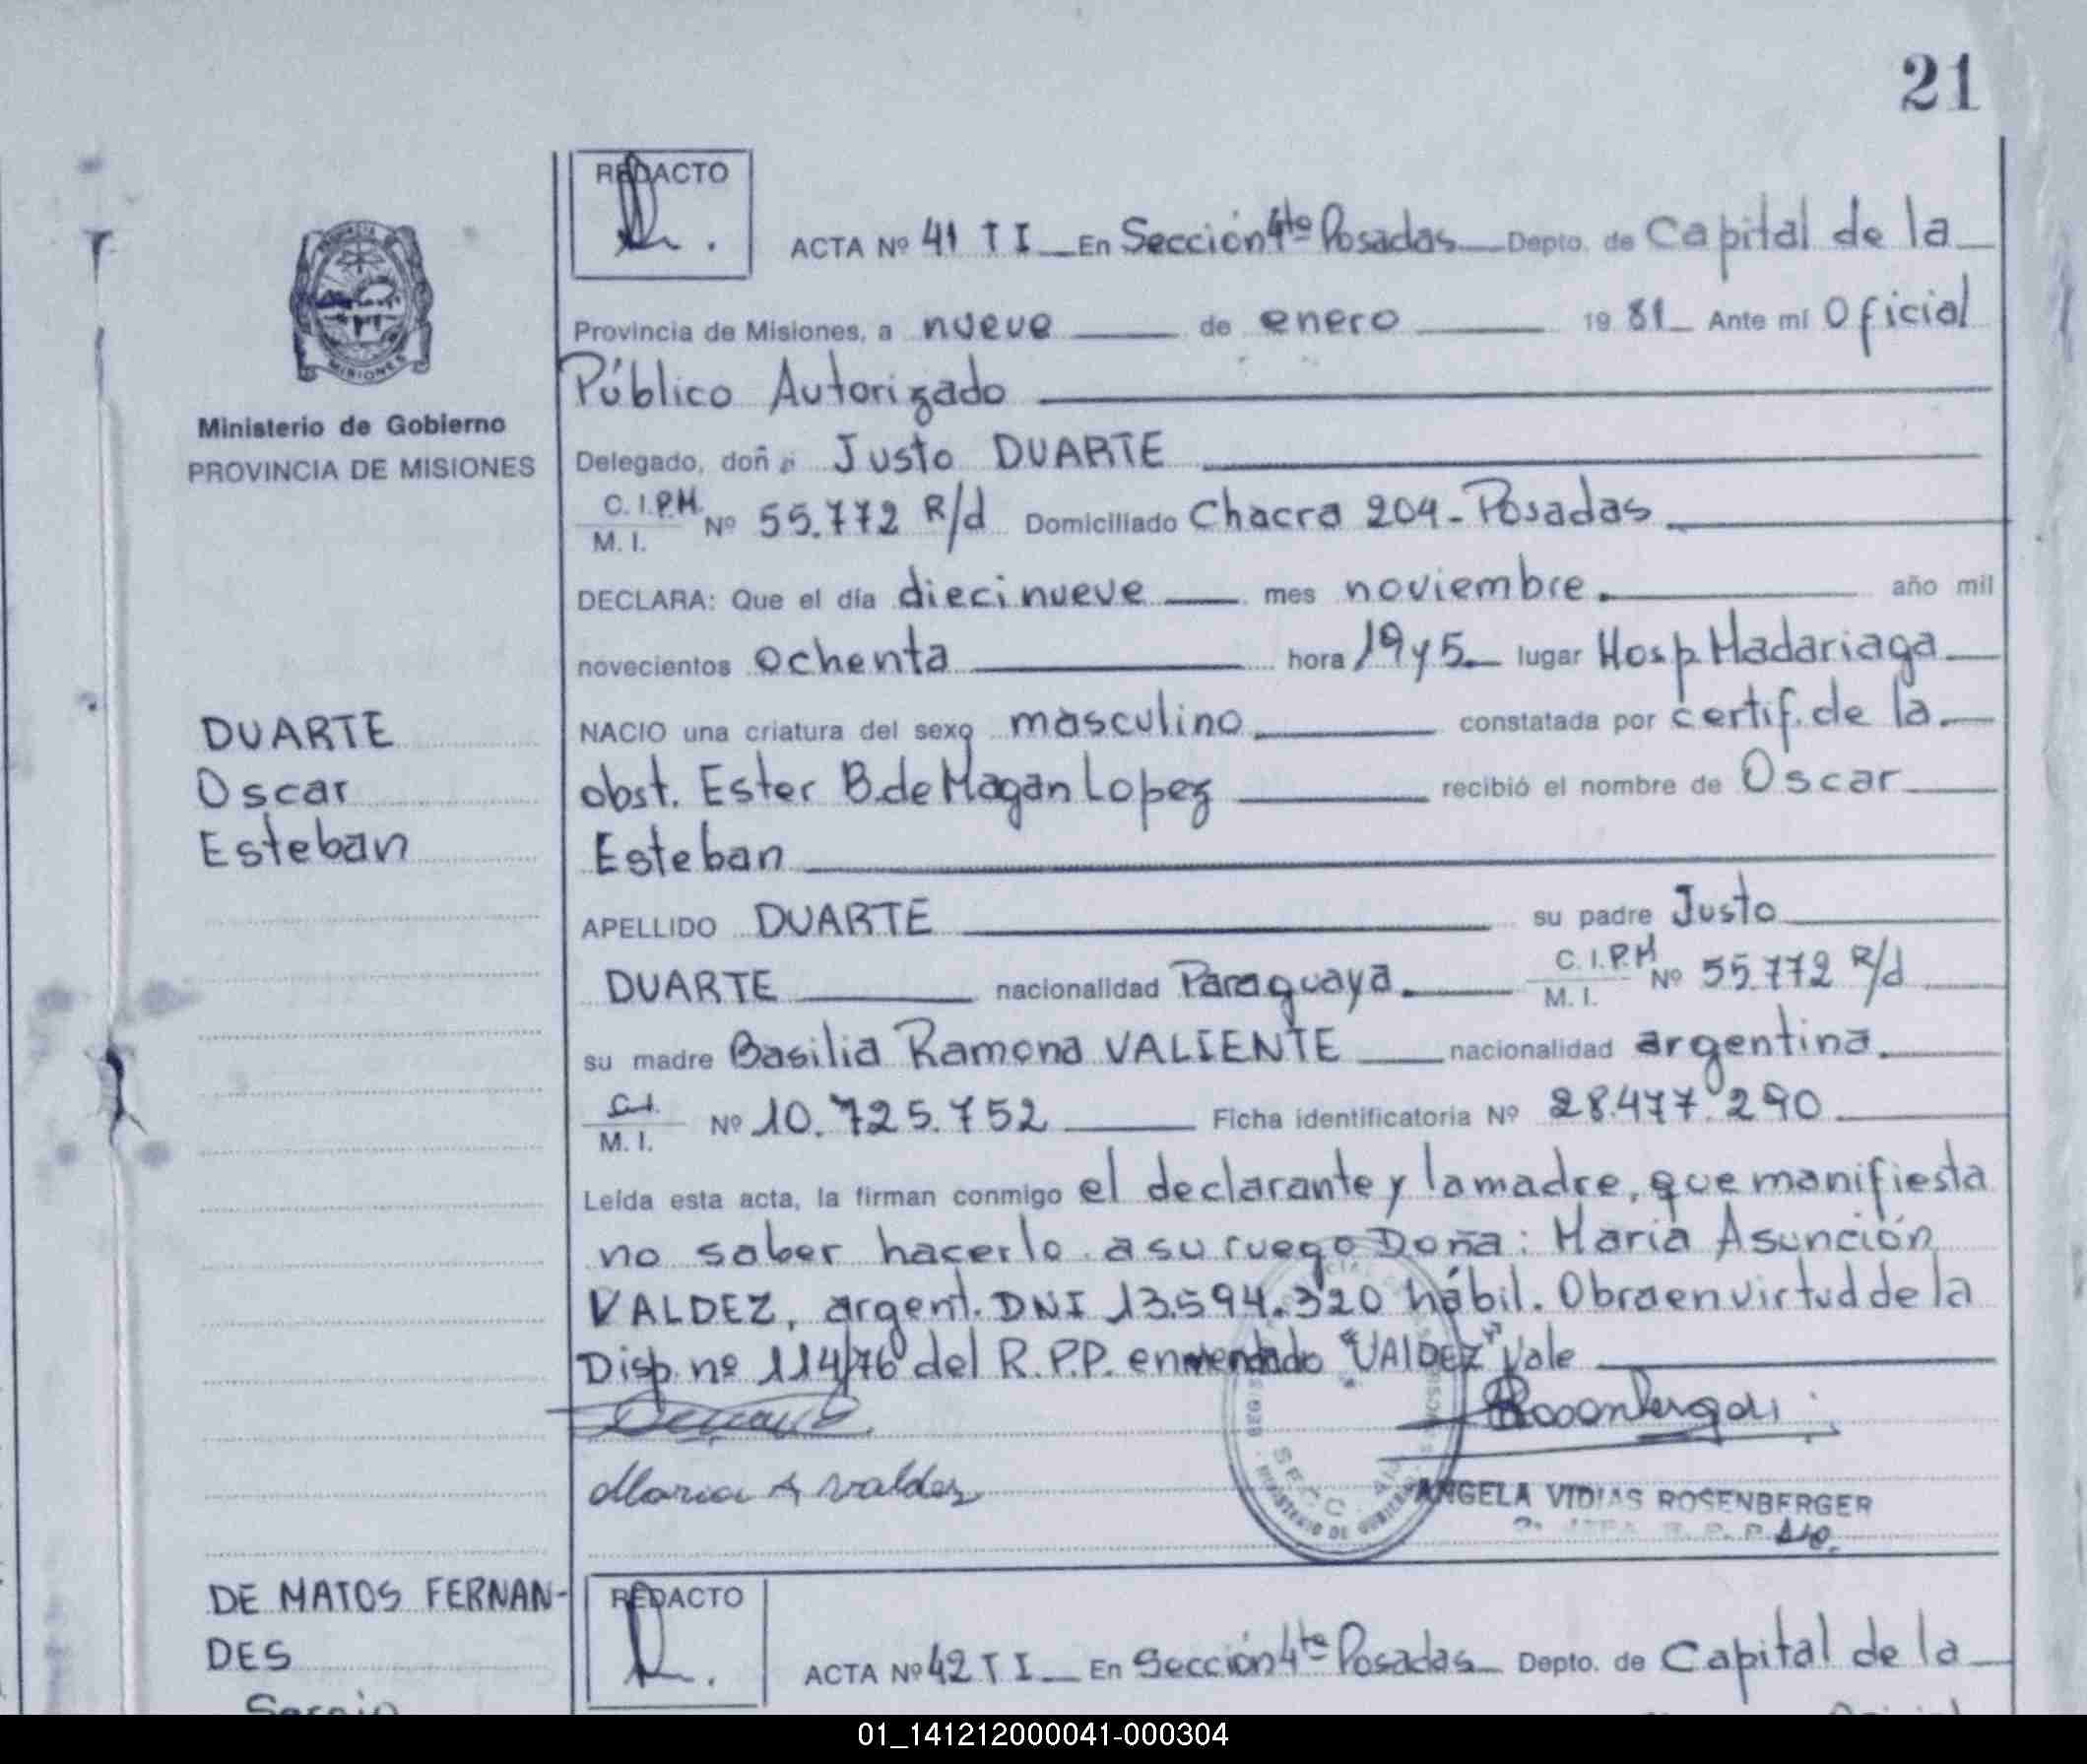 21
REDACTO
ACTA Nº 41 T I En Sección 4ta Posadas Depto. de Capital de la
Provincia de Misiones, a nueve de enero 19 81 Ante mí Oficial
Público Autorizado
Ministerio de Gobierno
PROVINCIA DE MISIONES
Delegado, doñ Justo DUARTE
C. I. P.M. / M. I. Nº 55.772 R/d Domiciliado Chacra 204 - Posadas
DECLARA: Que el día diecinueve mes noviembre. año mil
novecientos ochenta hora 19 y 5 lugar Hosp. Madariaga
DUARTE
Oscar
Esteban
NACIO una criatura del sexo masculino constatada por certif. de la
obst. Ester B. de Magan Lopez recibió el nombre de Oscar
Esteban
APELLIDO DUARTE su padre Justo
DUARTE nacionalidad Paraguaya. C. I. P.M / M. I. Nº 55.772 R/d
su madre Basilia Ramona VALIENTE nacionalidad argentina.
C.I. / M. I. Nº 10.725.752 Ficha identificatoria Nº 28.477.290
Leída esta acta, la firman conmigo el declarante y la madre, que manifiesta
no saber hacerlo a su ruego Doña: María Asunción
VALDEZ, argent. DNI 13.594.320 hábil. Obra en virtud de la
Disp. nº 114/76 del R.P.P. enmendado "VAlDEZ" Vale
Maria A Valdez
ANGELA VIDIAS ROSENBERGER
DE MATOS FERNAN-
DES
Sergio
REDACTO
ACTA Nº 42 T I En Sección 4ta Posadas Depto. de Capital de la
01_141212000041-000304